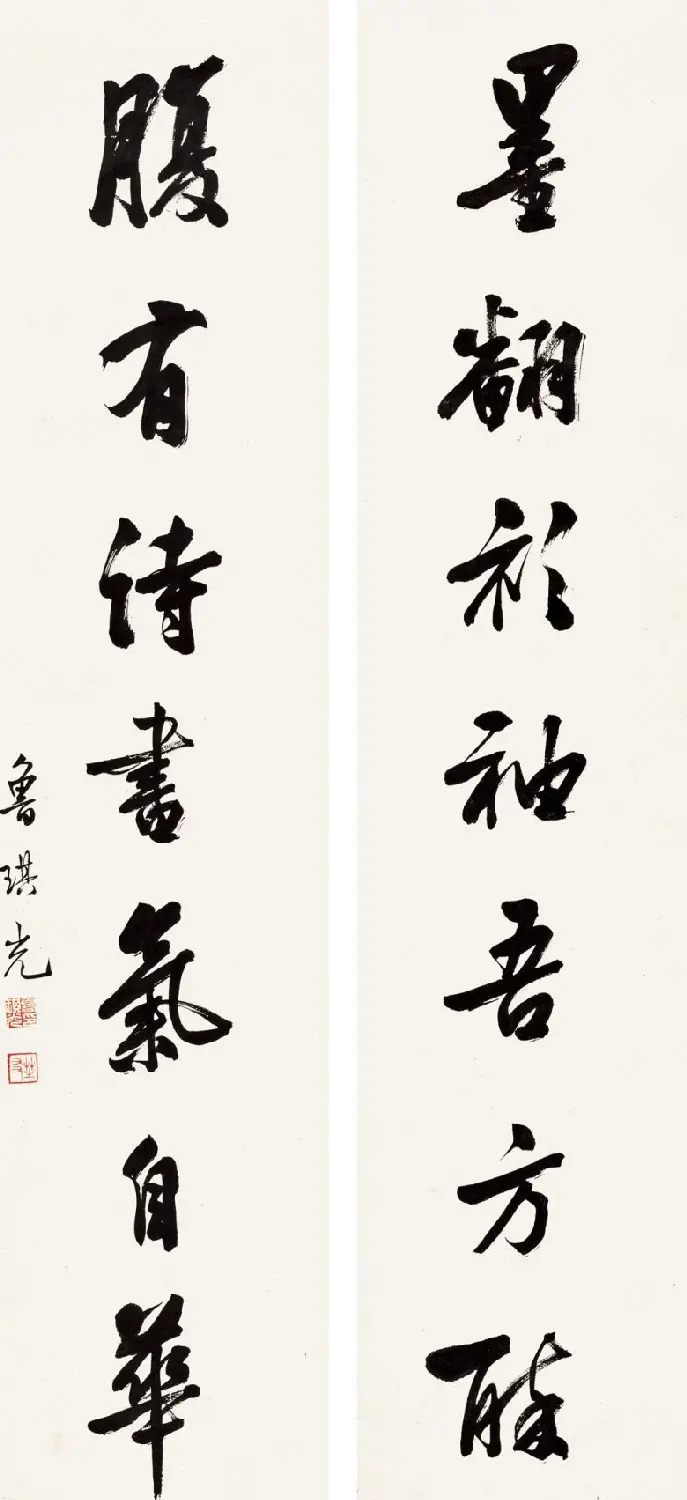 墨翻衫袖吾方醉
腹有詩書氣自華
魯琪光